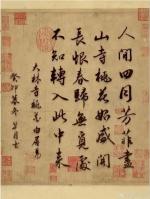 人間四月芳菲盡
山寺桃花始盛開
長恨春歸無覓處
不知轉入此中來
大林寺桃花 白居易
癸卯暮冬